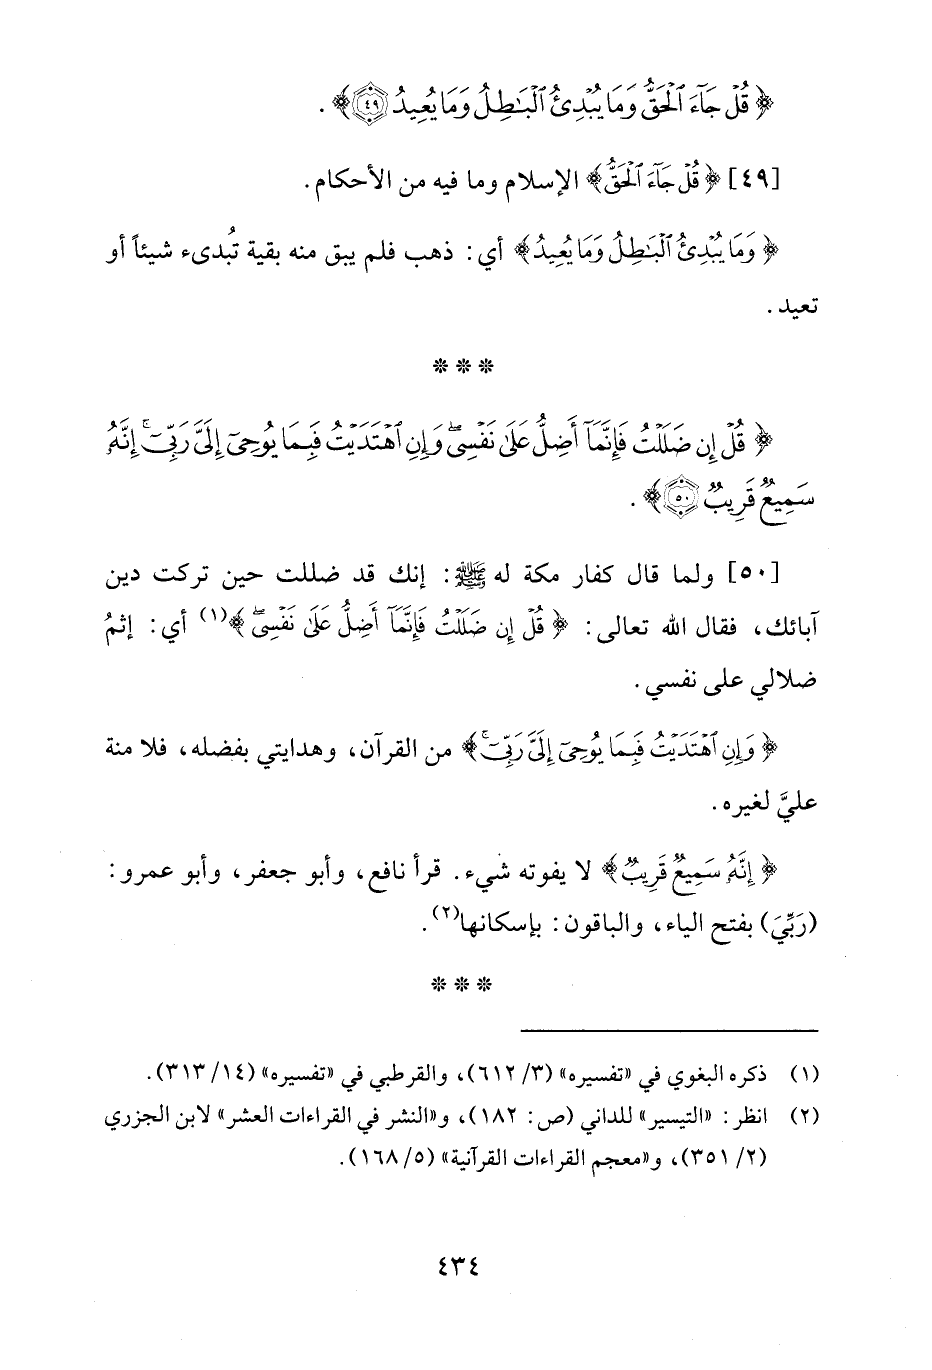 ﴿ قُلْ جَآءَ ٱلْحَقُّ وَمَا يُبْدِئُ ٱلْبَـٰطِلُ وَمَا يُعِيدُ ٤٩﴾ .
[٤٩] ﴿ قُلْ جَآءَ ٱلْحَقُّ﴾ الإسلام وما فيه من الأحكام.
﴿ وَمَا يُبْدِئُ ٱلْبَـٰطِلُ وَمَا يُعِيدُ﴾ أي: ذهب فلم يبق منه بقية تُبدىء شيئاً أو
تعيد.
* * *
﴿ قُلْ إِن ضَلَلْتُ فَإِنَّمَآ أَضِلُّ عَلَىٰ نَفْسِى ۖ وَإِنِ ٱهْتَدَيْتُ فَبِمَا يُوحِىٓ إِلَىَّ رَبِّىٓ ۚ إِنَّهُۥ
سَمِيعٌ قَرِيبٌ ٥٠﴾ .
[٥٠] ولما قال كفار مكة له ﷺ: إنك قد ضللت حين تركت دين
آبائك، فقال الله تعالى: ﴿ قُلْ إِن ضَلَلْتُ فَإِنَّمَآ أَضِلُّ عَلَىٰ نَفْسِى ۖ﴾(١) أي: إثمُ
ضلالي على نفسي.
﴿ وَإِنِ ٱهْتَدَيْتُ فَبِمَا يُوحِىٓ إِلَىَّ رَبِّىٓ ۚ﴾ من القرآن، وهدايتي بفضله، فلا منة
عليَّ لغيره.
﴿ إِنَّهُۥ سَمِيعٌ قَرِيبٌ﴾ لا يفوته شيء. قرأ نافع، وأبو جعفر، وأبو عمرو:
(رَبِّيَ) بفتح الياء، والباقون: بإسكانها(٢).
* * *
(١) ذكره البغوي في «تفسيره» (٣/ ٦١٢)، والقرطبي في «تفسيره» (١٤/ ٣١٣).
(٢) انظر: «التيسير» للداني (ص: ١٨٢)، و«النشر في القراءات العشر» لابن الجزري
(٢/ ٣٥١)، و«معجم القراءات القرآنية» (٥/ ١٦٨).
٤٣٤